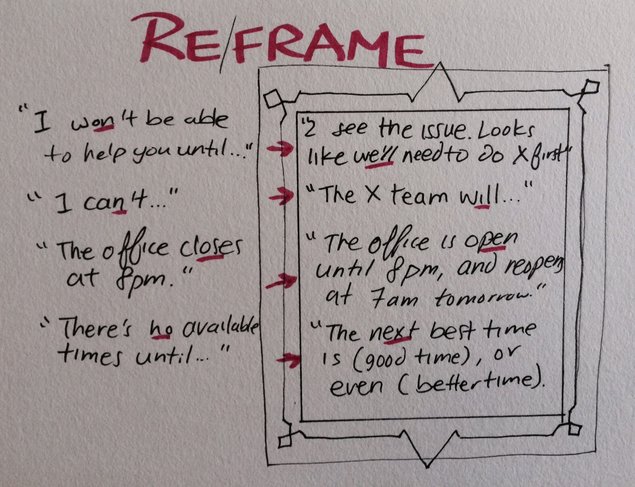 RE/FRAME
"I won't be able
to help you until..."
"I see the issue. Looks
like we'll need to do X first"
"I can't..."
"The X team will..."
"The office closes
at 8pm."
"The office is open
until 8pm, and reopens
at 7am tomorrow."
"There's no available
times until..."
"The next best time
is (good time), or
even (better time).